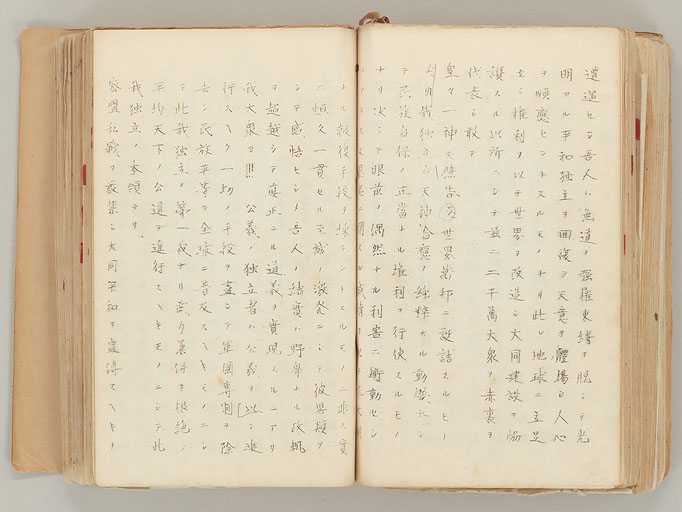 遭遇セシ吾人ハ無道ノ強権束縛ヲ脱シテ光
明アル平和独立ヲ回復シ天意ヲ體揚シ人心
ヲ順應セントスルモノナリ此レ地球ニ立足
セシ権利ヲ以テ世界ヲ改造シ大同建設ヲ協
讃スル以所ニシテ茲ニ二千萬大衆ノ赤衷ヲ
代表シ敢テ
皇々一神 昭告 世界萬邦ニ誕誥スルモノ
我独立ハ天神洽應ノ純粋ナル動機ニシ
テ民族自保ノ正當ナル権利ヲ行使スルモノ
ナリ決シテ眼前ノ偶然ナル利害ニ衝動セシ
ナル報復手段ヲ トスルモノニ非ス實
ニ恒久一貫セル至誠ノ激發ニシテ彼異類ヲ
シテ感悟セシメ吾人ノ結實ハ野卑ナル政軌
ヲ超越シテ真正ナル道義ヲ實現スルニアリ
我大衆ヨ!!! 公義ノ独立者ハ公義ヲ以テ進
行スヘク一切ノ手段ヲ盡シテ軍國専制ヲ除
去シ民族平等ヲ全球ニ普及スヘキモノニシ
テ此我独立ノ第一義ナリ武力兼併ヲ根絶シ
平均天下ノ公道ヲ進行スヘキモノニシテ此
我独立ノ本領ナリ、
密盟私戦ヲ厳禁シ大同平和ヲ宣傳スヘキ